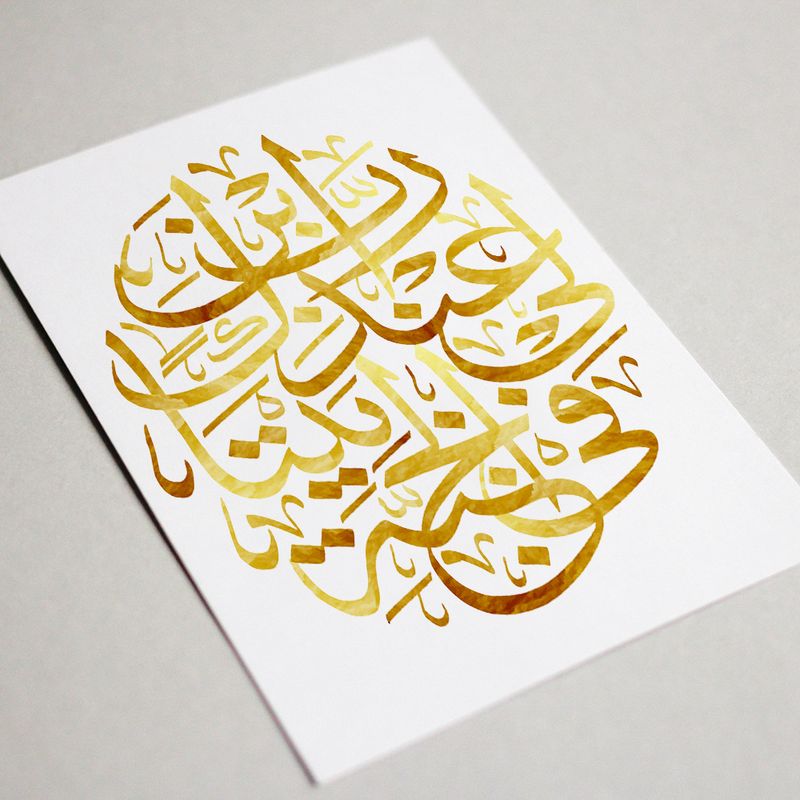 رب ابن لي عندك بيتا في الجنة